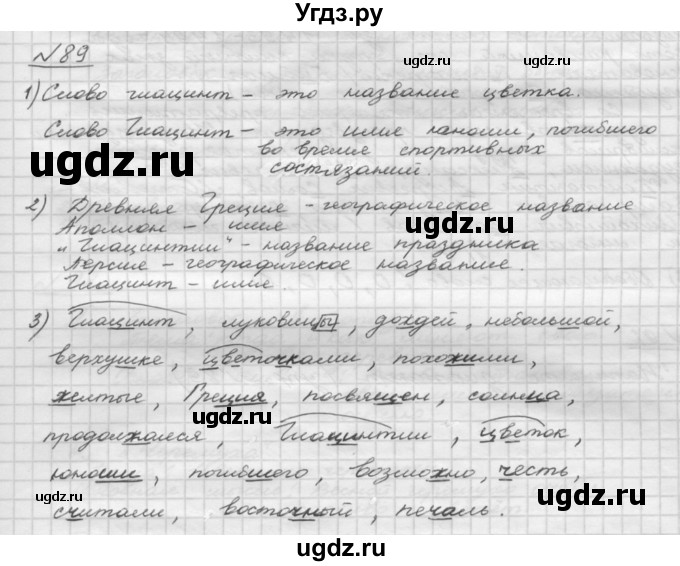 Угдз.ру
№89
ugdz.ru ugdz.ru
1) Слово гиацинт – это название цветка.
Слово Гиацинт – это имя юноши, погибшего
во время спортивных
состязаний.
ugdz.ru
2) Древняя Греция – географическое название
Аполлон – имя
ugdz.ru
"Гиацинтии" – название праздника
Персия – географическое название.
Гиацинт – имя.
3) Гиацинт, луковицы, дождей, небольшой,
ugdz.ru ugdz.ru
верхушке, цветочками, похожими,
желтые, Греция, посвящен, солнца,
ugdz.ru
продолжался, Гиацинтии, цветок,
юноши, погибшего, возможно, честь,
ugdz.ru ugdz.ru
считали, восточный, печаль.
ugdz.ru